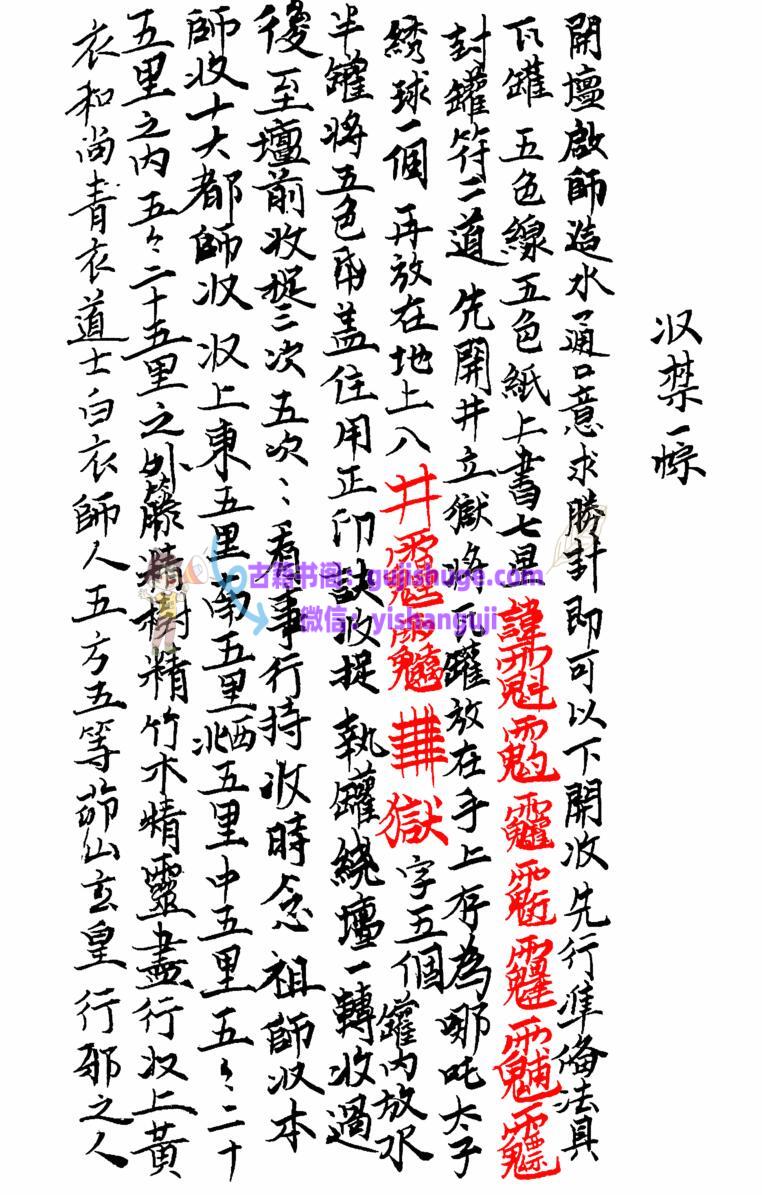 収禁一宗
開壇啟師造水通口意求勝卦即可以下開收先行準俻法具
瓦罐 五色線五色紙上書七星諱
封罐符二道 先開井立獄將瓦罐放在手上存為哪吒太子
綉球一個 再放在地上八井 獄字五個 罐內放水
半罐將五色帋盖住用正印訣收捉 執罐繞壇一轉收過
後至壇前收捉三次五次：看事行持收時念 祖師収本
師收十大都師収 収上東五里南五里西北五里中五里五々二十
五里之內五々二十五里之外藤精樹精竹木精靈盡行収上黃
衣和尚青衣道士白衣師人五方五等茆山玄皇行邪之人
古籍书阁：gujishuge.com
微信：yishanguji